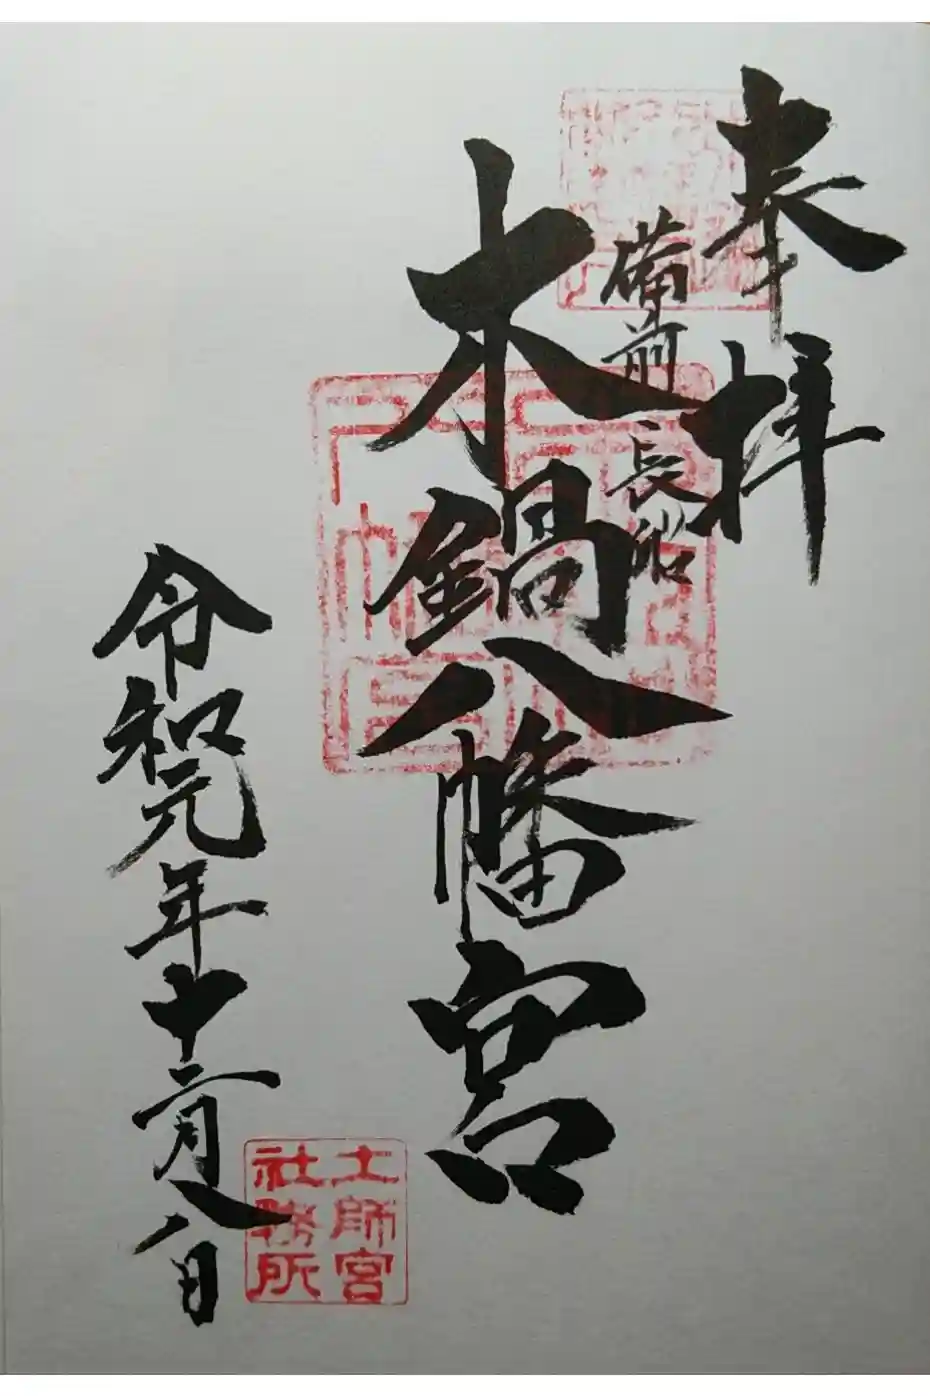 奉拝
備前長船
木鍋八幡宮
令和元年十二月八日
土師宮
社務所